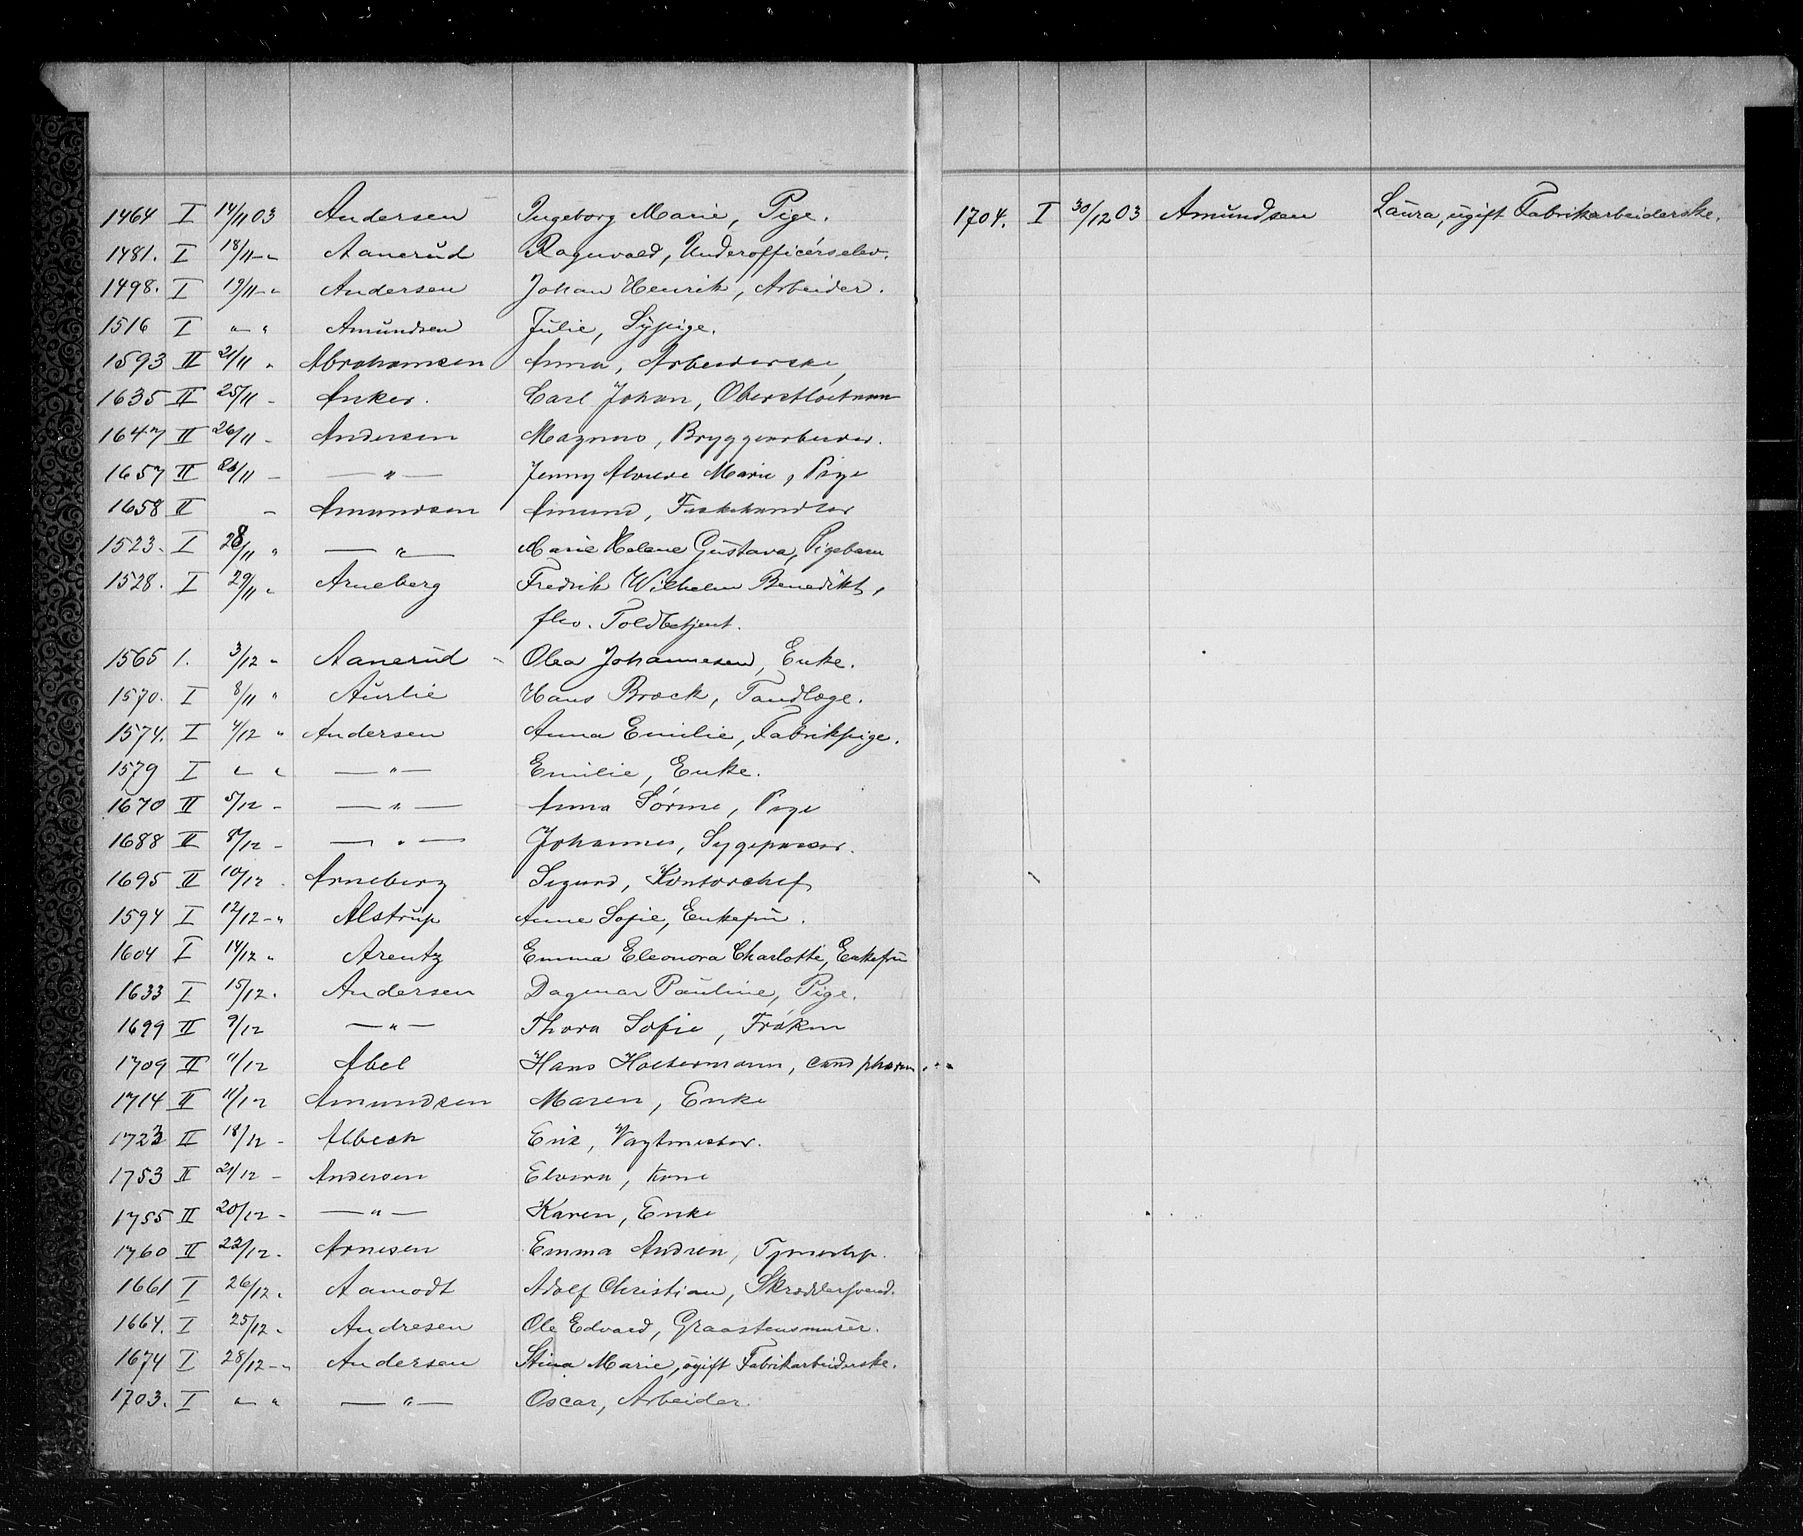 1464 I 14/11 03 Andersen Ingeborg Marie, Pige.
1481. I 18/11 - " Aanerud Ragnvald, Underofficerselev.
1498. I 19/11 - " Andersen Johan Henrik, Arbeider.
1516 I " " Amundsen Julie, Sypige.
1593 II 21/11 " Abrahamsen Anna, Arbeiderske
1635 II 25/11 - Anker. Carl Johan, Oberstløitnan
1647 II 26/11 - Andersen Magnus, Bryggearbeider.
1657 II 26/11 - — " — Jenny Marie, Pige
1658 II - Amundsen Amund, Fiskehandler
1523. I 28/11 " — " — Marie Helene Gustava, Pigebarn
1528. I 29/11 " Arneberg Fredrik Wilhelm Benedikt,
fhv. Toldbetjent.
1565 1. 3/12 " Aanerud - Olea Johannesen, Enke.
1570. I 8/11 " Aurlie Hans Brock, Tandlæge.
1574. I 4/12 " Andersen Anna Emilie, Fabrikpige.
1579 I " " — " — Emilie, Enke.
1670 II 5/12 - — " — Anna Sørine, Pige
1688 II 8/12 - — " — Johannes, Sygepasser.
1695 II 10/12 . Arneberg Sigurd, Kontorchef
1594 I 12/12 - " Alstrup Anne Sofie, Enkefru.
1604 I 14/12 " Arentz Emma Eleonora Charlotte, Enkefru
1633 I 15/12 . Andersen Dagmar Pauline, Pige.
1699 II 9/12 — " — Thora Sofie, Frøken
1709 II 11/12 Abel Hans Holtermann, cand pharm...
1714 II 11/12 Amundsen Maren, Enke
1723 II 18/12 - Albeck Erik, Vagtmester.
1753 II 21/12 - Andersen Elvira, Kone
1755 II 20/12 - — " — Karen, Enke
1760 II 22/12 . Arnesen Emma
1661 I 26/12 . Aamodt Adolf Christian, Skræddersvend.
1664. I 25/12 . Andresen Ole Edvard, Graastensmurer.
1674 I 28/12 - " Andersen Stina Marie, ugift Fabrikarbeiderske.
1703. I " " — " — Oscar, Arbeider.
1704. I 30/12 03 Amundsen Laura, ugift Fabrikarbeiderske.